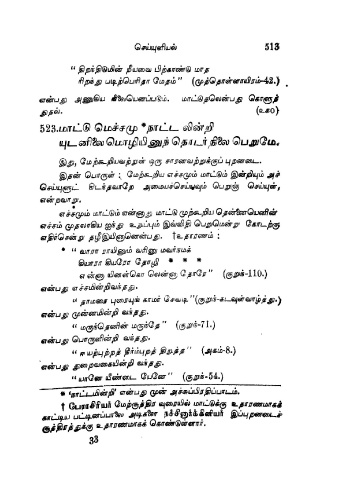 செய்யுளியல் 513
“ திறந்திடுமின் தீயவை பிற்காண்டு மாத
ரிறந்து படிற்பெரிதா மேதம்” (முத்தொள்ளாயிரம்-42.)
என்பது அணுகிய நிலையெனப்படும். மாட்டுதலென்பது கொளுத்
துதல். (உக0)
523.மாட்டு மெச்சமு *நாட்ட லின்றி
யுடனிலைமொழியினுந் தொடர்நிலை பெறுமே.
இது, மேற்கூறியவற்றுள் ஒரு சாரனவற்றுக்குப் புறனடை.
இதன் பொருள் : மேற்கூறிய எச்சமும் மாட்டும் இன்றியும் அச்
செய்யுளுட் கிடந்தவாறே அமையச்செய்யவும் பெறுஞ் செய்யுள்,
என்றவாறு.
எச்சமும் மாட்டும் என்னாது மாட்டு முற்கூறிய தென்னையெனின்
எச்சம் முதலாகிய ஐந்து உறுப்பும் இவ்விதி பெறுமென்று கோடற்கு
எதிர்சென்று தழீஇயினானென்பது. †உதாரணம் :
* “ வாரா ராயினும் வரினு மவர்நமக்
கியாரா கியரோ தோழி * * *
என்னு யினள்கொ லென்னு தோரே” (குறுந்-110.)
என்பது எச்சமின்றிவந்தது.
“ தாமரை புரையுங் காமர் சேவடி”(குறுந்-கடவுள்வாழ்த்து.)
என்பது முன்னமின்றி வந்தது.
“ மருந்தெனின் மருந்தே” (குறுந்-71.)
என்பது பொருளின்றி வந்தது.
“ ஈயற்புற்றத் தீர்ம்புறத் திறுத்த” (அகம்-8.)
என்பது துறைவகையின்றி வந்தது.
“யானே யீண்டை யேனே” (குறுந்-54.)
* 'நாட்டமின்றி' என்பது முன் அச்சுப்பிரதிப்பாடம்.
† பேராசிரியர் மேற்சூத்திர வுரையில் மாட்டுக்கு உதாரணமாகக்
காட்டிய பட்டினப்பாலை அடிகளை நச்சினார்க்கினியர் இப்புறனடைச்
சூத்திரத்துக்கு உதாரணமாகக் கொண்டுள்ளார்.
33